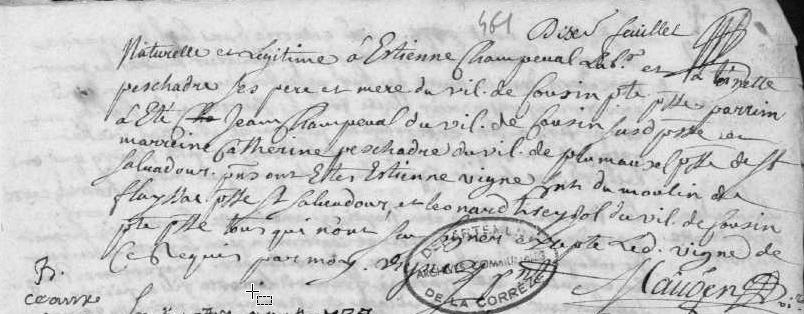 461 Dixe feuillet
Naturelle et legitime à Estienne Champeval Labr. et à toinette
peschadre ses pere et mere du vil. de cousin pte psse parrein
à Eté Jean Champeval du vil. de cousin susd psse et
marreine Catherine peschadre du vil. de plumauzel psse de St
salvadour. pns ont Eté Estienne vigne du moulin de
flayssac psse St salvadour, et leonard du vil. de cousin
pte psse tous qui n'ont su signer excepté Led. vigne de
Ce Requis par moy. Vigne
DÉPARTEMENT
ARCHIVES COMMUNALES
DE LA CORRÈZE